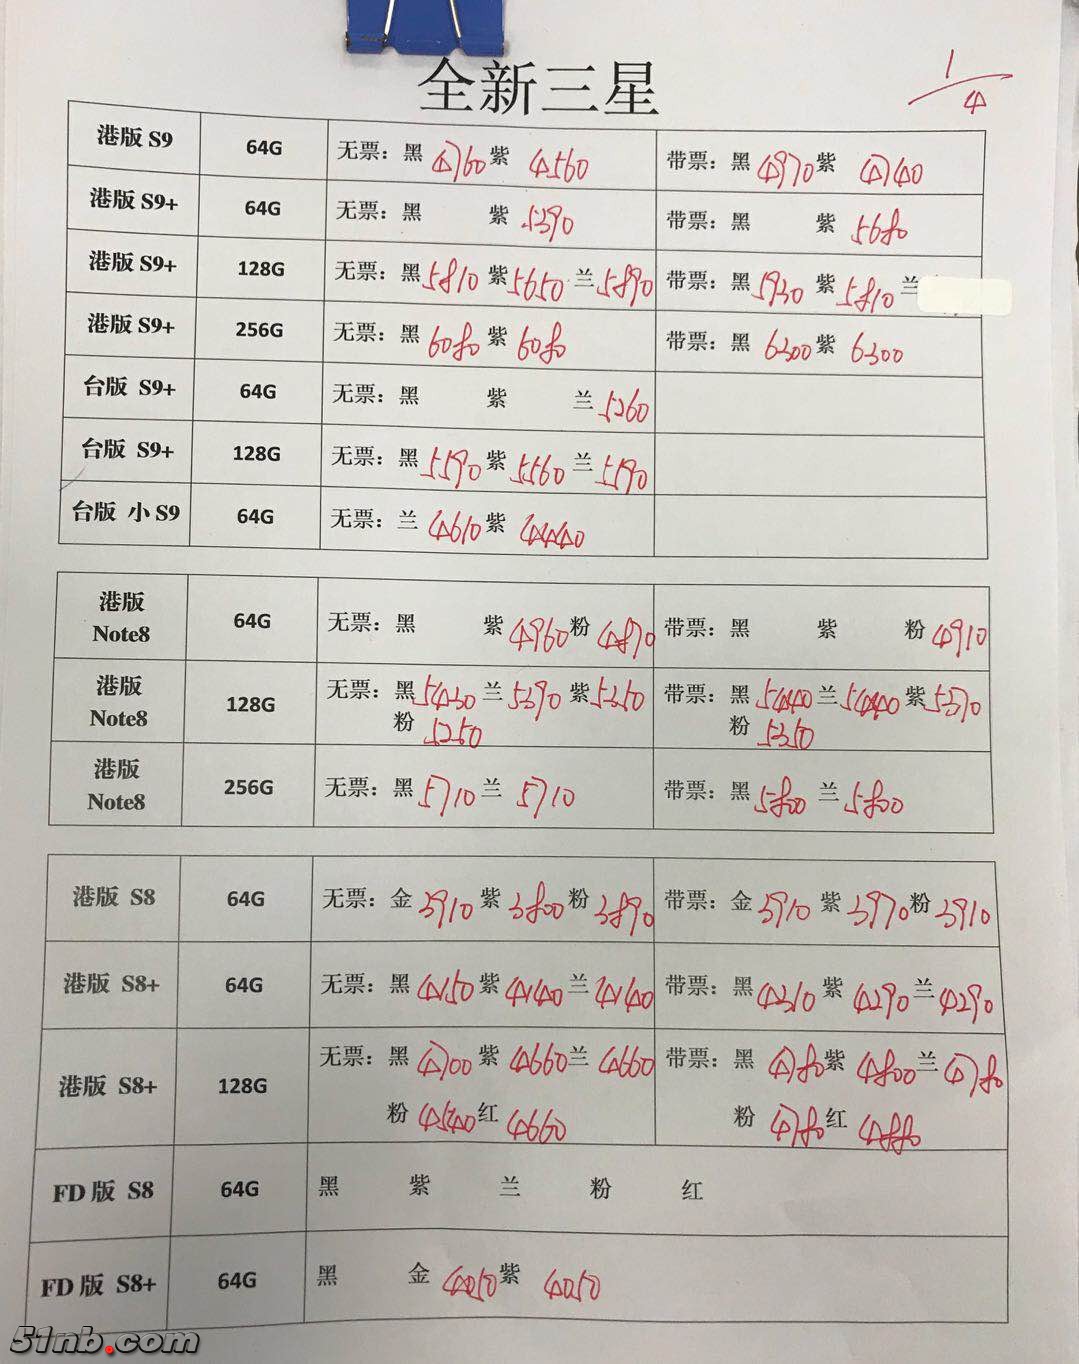 全新三星
1/4
港版 S9 64G 无票：黑 4760 紫 4560 带票：黑 4970 紫 4740
港版 S9+ 64G 无票：黑 紫 5390 带票：黑 紫 5680
港版 S9+ 128G 无票：黑 5810 紫 5650 兰 5890 带票：黑 5930 紫 5810 兰
港版 S9+ 256G 无票：黑 6080 紫 6080 带票：黑 6300 紫 6300
台版 S9+ 64G 无票：黑 紫 兰 5260
台版 S9+ 128G 无票：黑 5590 紫 5560 兰 5590
台版 小 S9 64G 无票：兰 4610 紫 4440
港版
Note8 64G 无票：黑 紫 4960 粉 4870 带票：黑 紫 粉 4910
港版
Note8 128G 无票：黑 5430 兰 5390 紫 5350 带票：黑 5440 兰 5440 紫 5370
粉 5250 粉 5350
港版
Note8 256G 无票：黑 5710 兰 5710 带票：黑 5800 兰 5800
港版 S8 64G 无票：金 3910 紫 3800 粉 3890 带票：金 3910 紫 3970 粉 3910
港版 S8+ 64G 无票：黑 4150 紫 4140 兰 4140 带票：黑 4310 紫 4290 兰 4290
港版 S8+ 128G 无票：黑 4700 紫 4660 兰 4660 带票：黑 4780 紫 4800 兰 4780
粉 4540 红 4660 粉 4780 红 4880
FD 版 S8 64G 黑 紫 兰 粉 红
FD 版 S8+ 64G 黑 金 4050 紫 4050
51nb.com